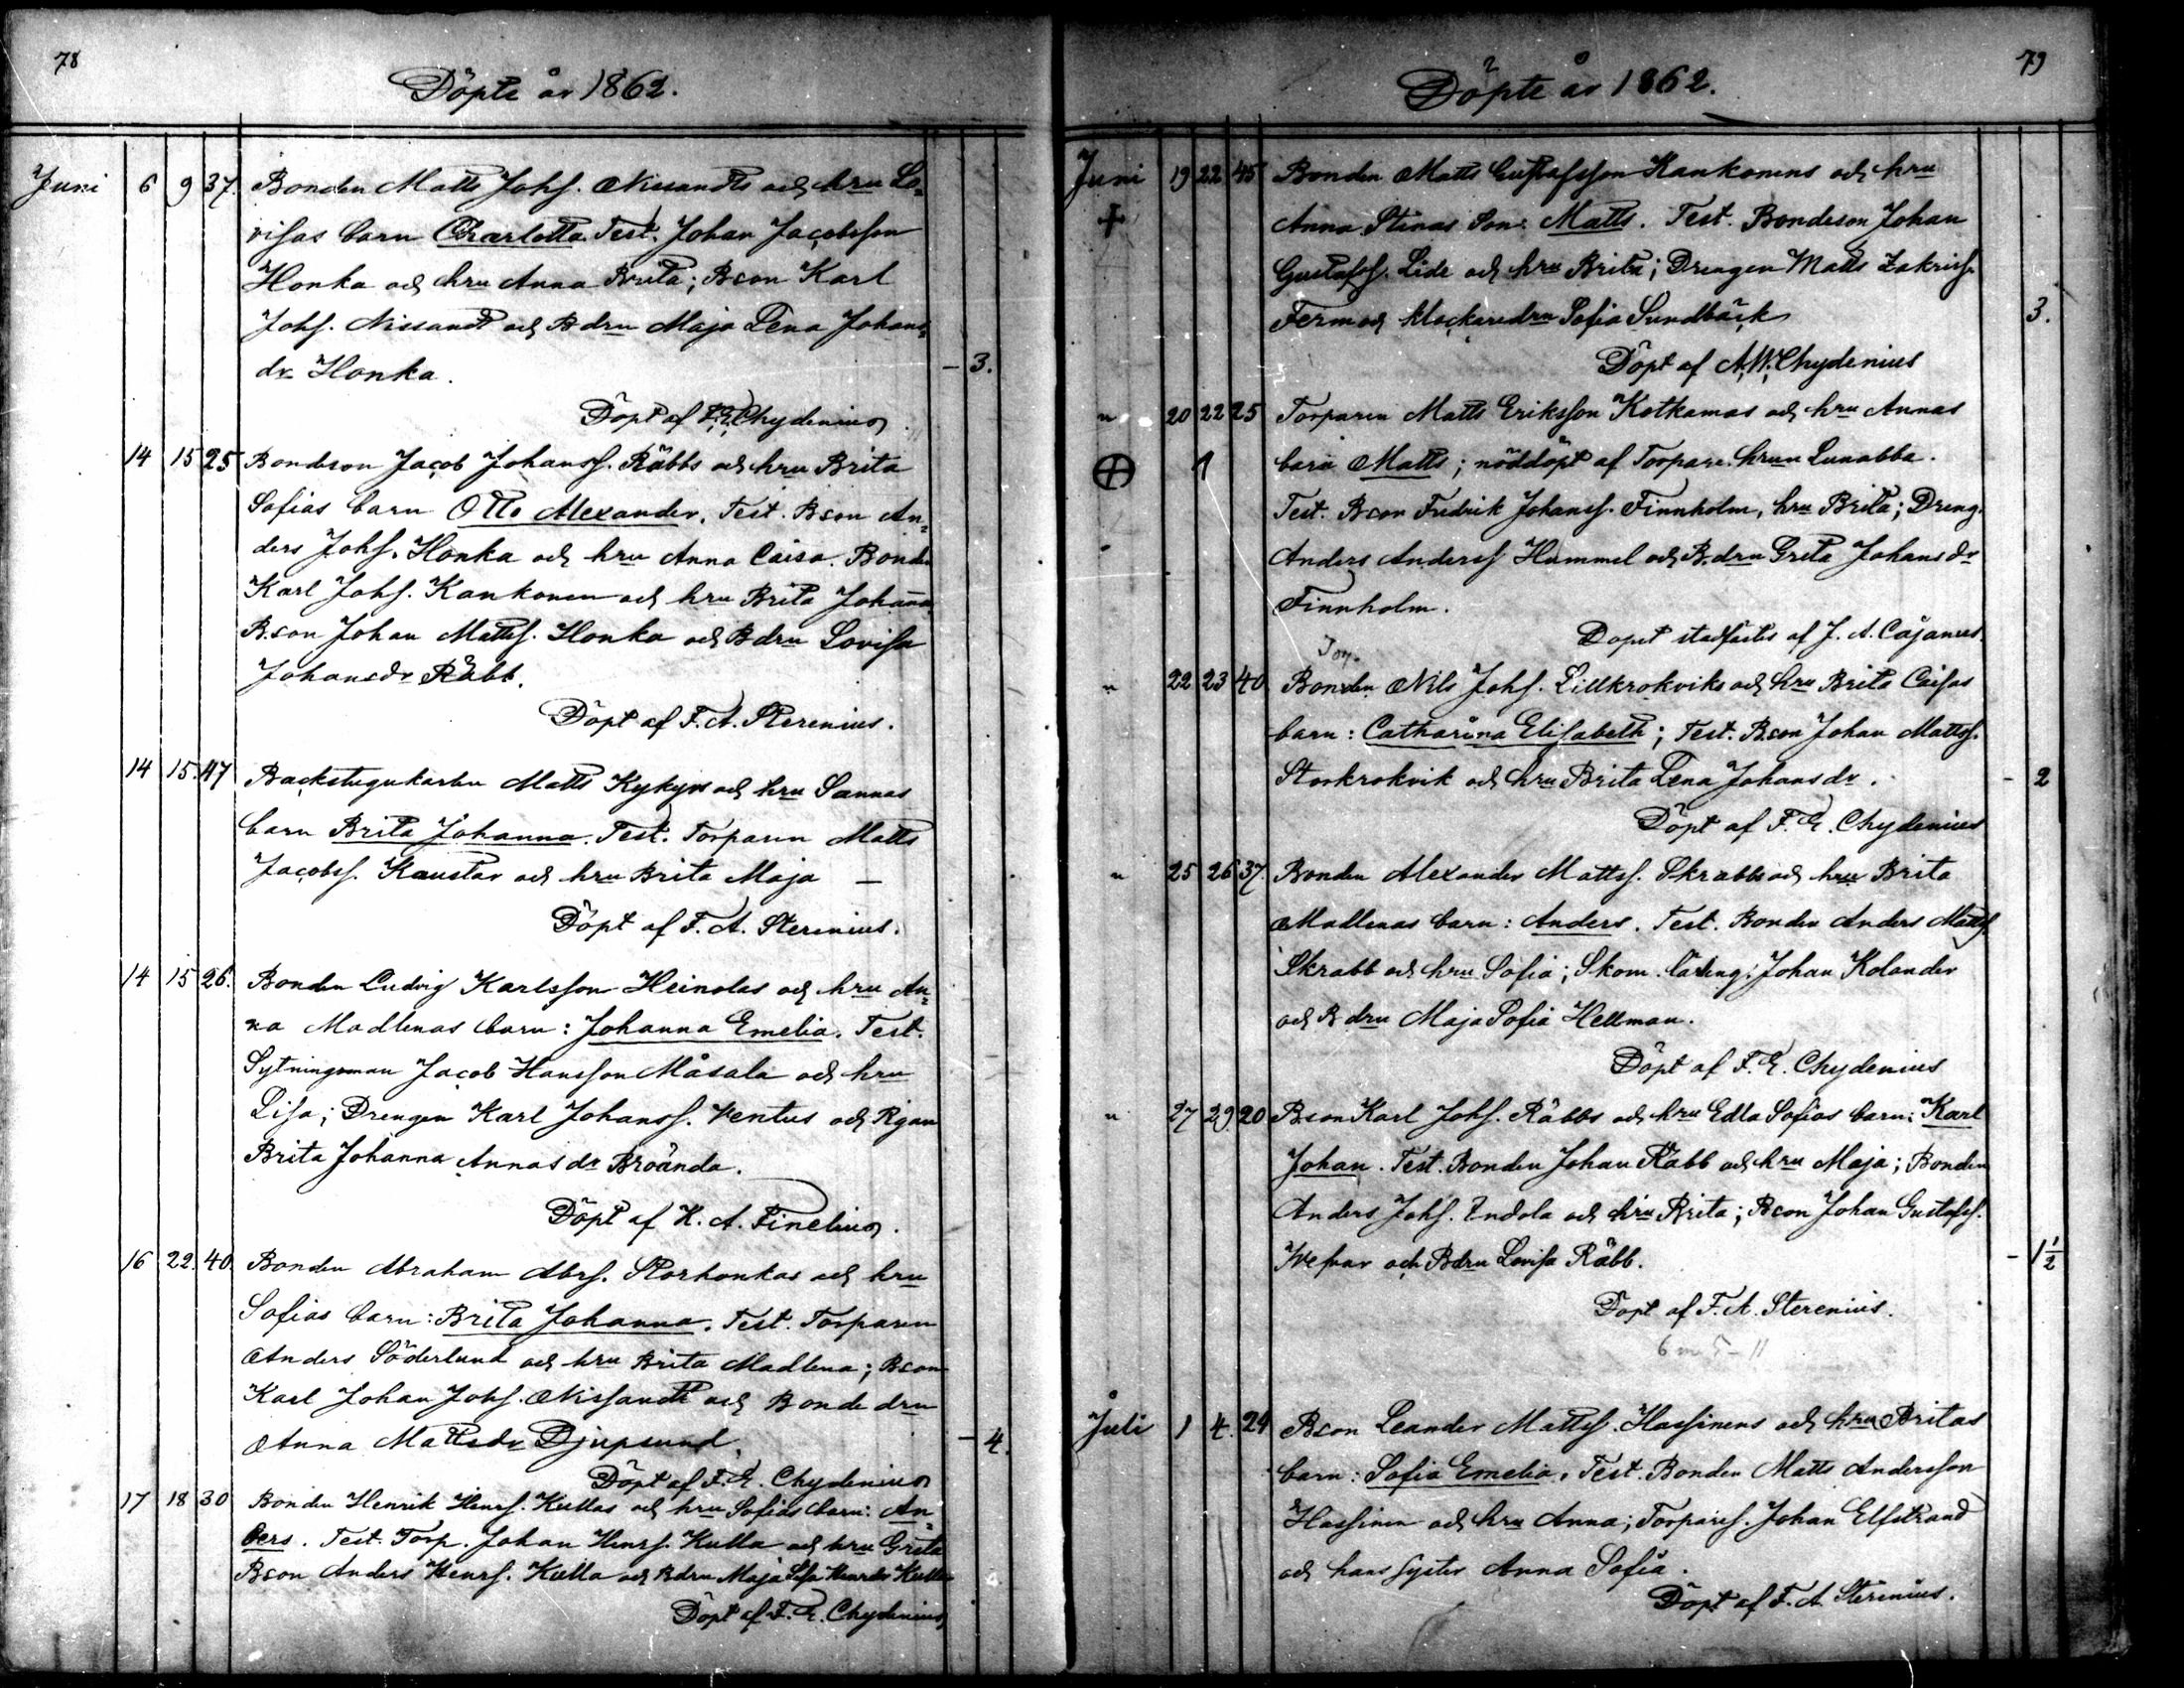 78
Döpte år 1862.
Juni 6 9 37. Bonden Matts Johs. Nissandts och hru Lo=
visas barn Charlotta. Test. Johan Jacobsson
Honka och hru Anna Brita; Bson Karl
Johs. Nissandt och Bdrn Maja Lena Johans=
dr Honka. - 3.
Döpt af F.E. Chydenius.
14 15 25 Bondeson Jacob Johanss. Räbbs och hru Brita
Sofias barn Otto Alexander. Test. Bson An=
ders Johs. Honka och hru Anna Caisa. Bonden
Karl Johs. Kankonen och hru Brita Johanna,
Bson Johan Mattss. Honka och Bdrn Lovisa
Johansdr Räbb.
Döpt af F. A. Sterenius.
14 15. 47 Backstugukarlen Matts Kykyrs och hru Sannas
barn Brita Johanna. Test. Torparen Matts
Jacobss. Kaustar och hru Brita Maja —
Döpt af F. A. Sterenius.
14 15 26. Bonden Ludvig Karlsson Heinolas och hru An=
na Madlenas barn: Johanna Emelia. Test.
Sytningsman Jacob Hansson Måsala och hru
Lisa; Drengen Karl Johanss. Ventus och Pigan
Brita Johanna Annasdr Broända.
Döpt af K. A. Finelius.
16 22. 40. Bonden Abraham Abrs. Storhonkas och hru
Sofias barn: Brita Johanna. Test. Torparen
Anders Söderlund och hru Brita Madlena; Bson
Karl Johan Johs. Nissandt och Bonde drn
Anna Mattsdr Djupsund. - 4.
Döpt af F. E. Chydenius
17 18 30 Bonden Henrik Henrs. Kullas och hru Sofias barn: An=
ders. Test. Torp. Johan Henrs. Kulla och hru Greta
Bson Anders Henrs. Kulla och Bdrn Maja Lisa Henrdr Kulla
Döpt af F. E. Chydenius
79
Döpte år 1862.
Juni 19 22 45 Bonden Matts Gustafsson Kankonens och hru
+ Anna Stinas Son: Matts. Test. Bondeson Johan
Gustafss. Lide och hru Brita; Drengen Matts Zakriss.
Ferm och klockaredrn Sofia Sundbäck 3.
Döpt af A.W. Chydenius
" 20 22 25 Torparen Matts Eriksson Kotkamas och hru Annas
barn Matts; nöddöpt af Torpare hrun Lunabba.
Test. Bson Fredrik Johanss. Finnholm, hru Brita; Dreng.
Anders Anderss Hummel och B.drn Greta Johansdr
Finnholm.
Dopet stadfästes af J. A. Cajanus.
" 22 23 40 Bonden Nils Johs. Lillkrokviks och hru Brita Caisas
barn: Catharina Elisabeth; Test. Bson Johan Mattss.
Storkrokvik och hru Brita Lena Johansdr. - 2
Döpt af F. E. Chydenius
" 25 26 37. Bonden Alexander Mattss. Skrabbs och hru Brita
Madlenas barn: Anders. Test. Bonden Anders Mattss.
Skrabb och hru Sofia; Skom. lärling: Johan Kolander
och B drn Maja Sofia Hellman.
Döpt af F. E. Chydenius
" 27 29. 20 Bson Karl Johs. Räbbs och hru Edla Sofias barn: Karl
Johan. Test. Bonden Johan Räbb och hru Maja; Bonden
Anders Johs. Indola och hru Brita; Bson Johan Gustafss.
Wefvar och Bdrn Lovisa Räbb. - 1 1/2
Döpt af F. A. Sterenius.
Juli 1 4. 24 Bson Leander Mattss. Hassinens och hru Britas
barn: Sofia Emelia. Test. Bonden Matts Andersson
Hassinen och hru Anna; Torpares. Johan Elfstrand
och hans syster Anna Sofia.
Döpt af F. A Sterenius.